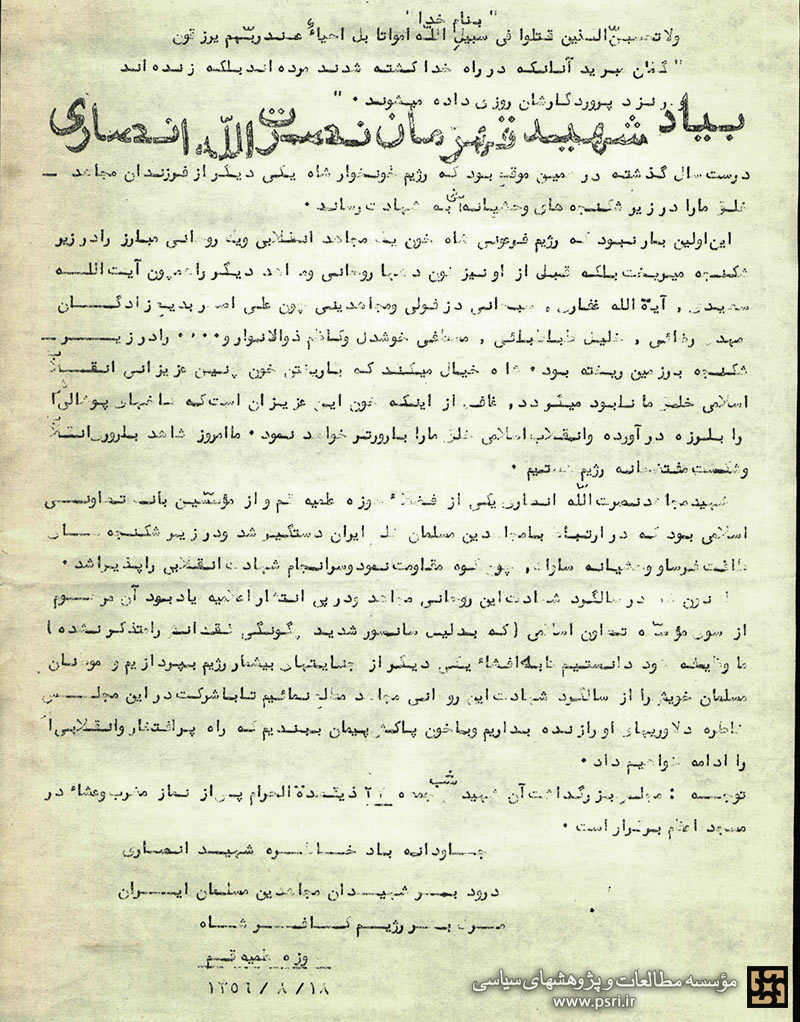 " بنام خدا "
ولا تحسبن الذین قتلوا فی سبیل الله امواتا بل احیاء عند ربهم یرزقون
" گمان مبرید آنانکه در راه خدا کشته شدند مرده اند بلکه زنده اند
و نزد پروردگارشان روزی داده میشوند . "
بیاد شهید قهرمان نصرت الله انصاری
درست سال گذشته در همین موقع بود که رژیم خونخوار شاه یکی دیگر از فرزندان مجاهد
خلق ما را در زیر شکنجه های وحشیانه اش به شهادت رساند .
این اولین بار نبود که رژیم فرعونی شاه خون یک مجاهد انقلابی ویک روحانی مبارز را در زیر
شکنجه میریخت بلکه قبل از او نیز خون دهها روحانی ومجاهد دیگر را همچون آیت الله
سعیدی , آیة الله غفاری , دزفولی ومجاهدینی چون علی اصغر بدیع زادگان
مهدی رضائی , خلیل طباطبائی , مصطفی خوشدل وکاظم ذوالانوار و .... را در زیر
شکنجه بر زمین ریخته بود . شاه خیال میکند که با ریختن خون چنین عزیزانی انقلاب
اسلامی خلق ما نابود میگردد , غافل از اینکه خون این عزیزان است که کاخهای پوشالی
را بلرزه در آورده وانقلاب اسلامی خلق ما را بارورتر خواهد نمود . ما امروز شاهد باروری انقلاب
وشکست مفتضحانه رژیم هستیم .
شهید مجاهد نصرت الله انصاری یکی از فضلاء حوزه علمیه قم و از مؤسسین بانک تعاونی
اسلامی بود که در ارتباط با مجاهدین مسلمان خلق ایران دستگیر شد ودر زیر شکنجه های
طاقت فرسا و وحشیانه ساواک , چون کوه مقاومت نمود وسرانجام شهادت انقلابی را پذیرا شد .
اکنون که در سالگرد شهادت این روحانی مجاهد ودر پی انتشار اعلامیه یاد بود آن مرحوم
از سوی مؤسسه تعاون اسلامی ( که بدلیل سانسور شدید چگونگی را متذکر نشده )
ما وظیفه خود دانستیم تا به افشاء یکی دیگر از جنایتهای بیشمار رژیم بپردازیم و
مسلمان خویش را از سالگرد شهادت این روحانی مجاهد مطلع نمائیم تا با شرکت در این مجلس
خاطره دلاوریهای او را زنده بداریم وبا خون پاکش پیمان ببندیم که راه پر افتخار وانقلابی
را ادامه خواهیم داد .
توجه : مجلس بزرگداشت آن شهید شب جمعه ذیقعدة الحرام پس از نماز مغرب وعشاء در
مسجد اعظم برگزار است .
جاودانه باد خاطره شهید انصاری
درود بر شهیدان مجاهدین مسلمان ایران
مرگ بر رژیم کافر شاه
حوزه علمیه قم
۱۳۵۶ / ۸ / ۱۸
مؤسسه مطالعات و پژوهشهای سیاسی
www.psri.ir